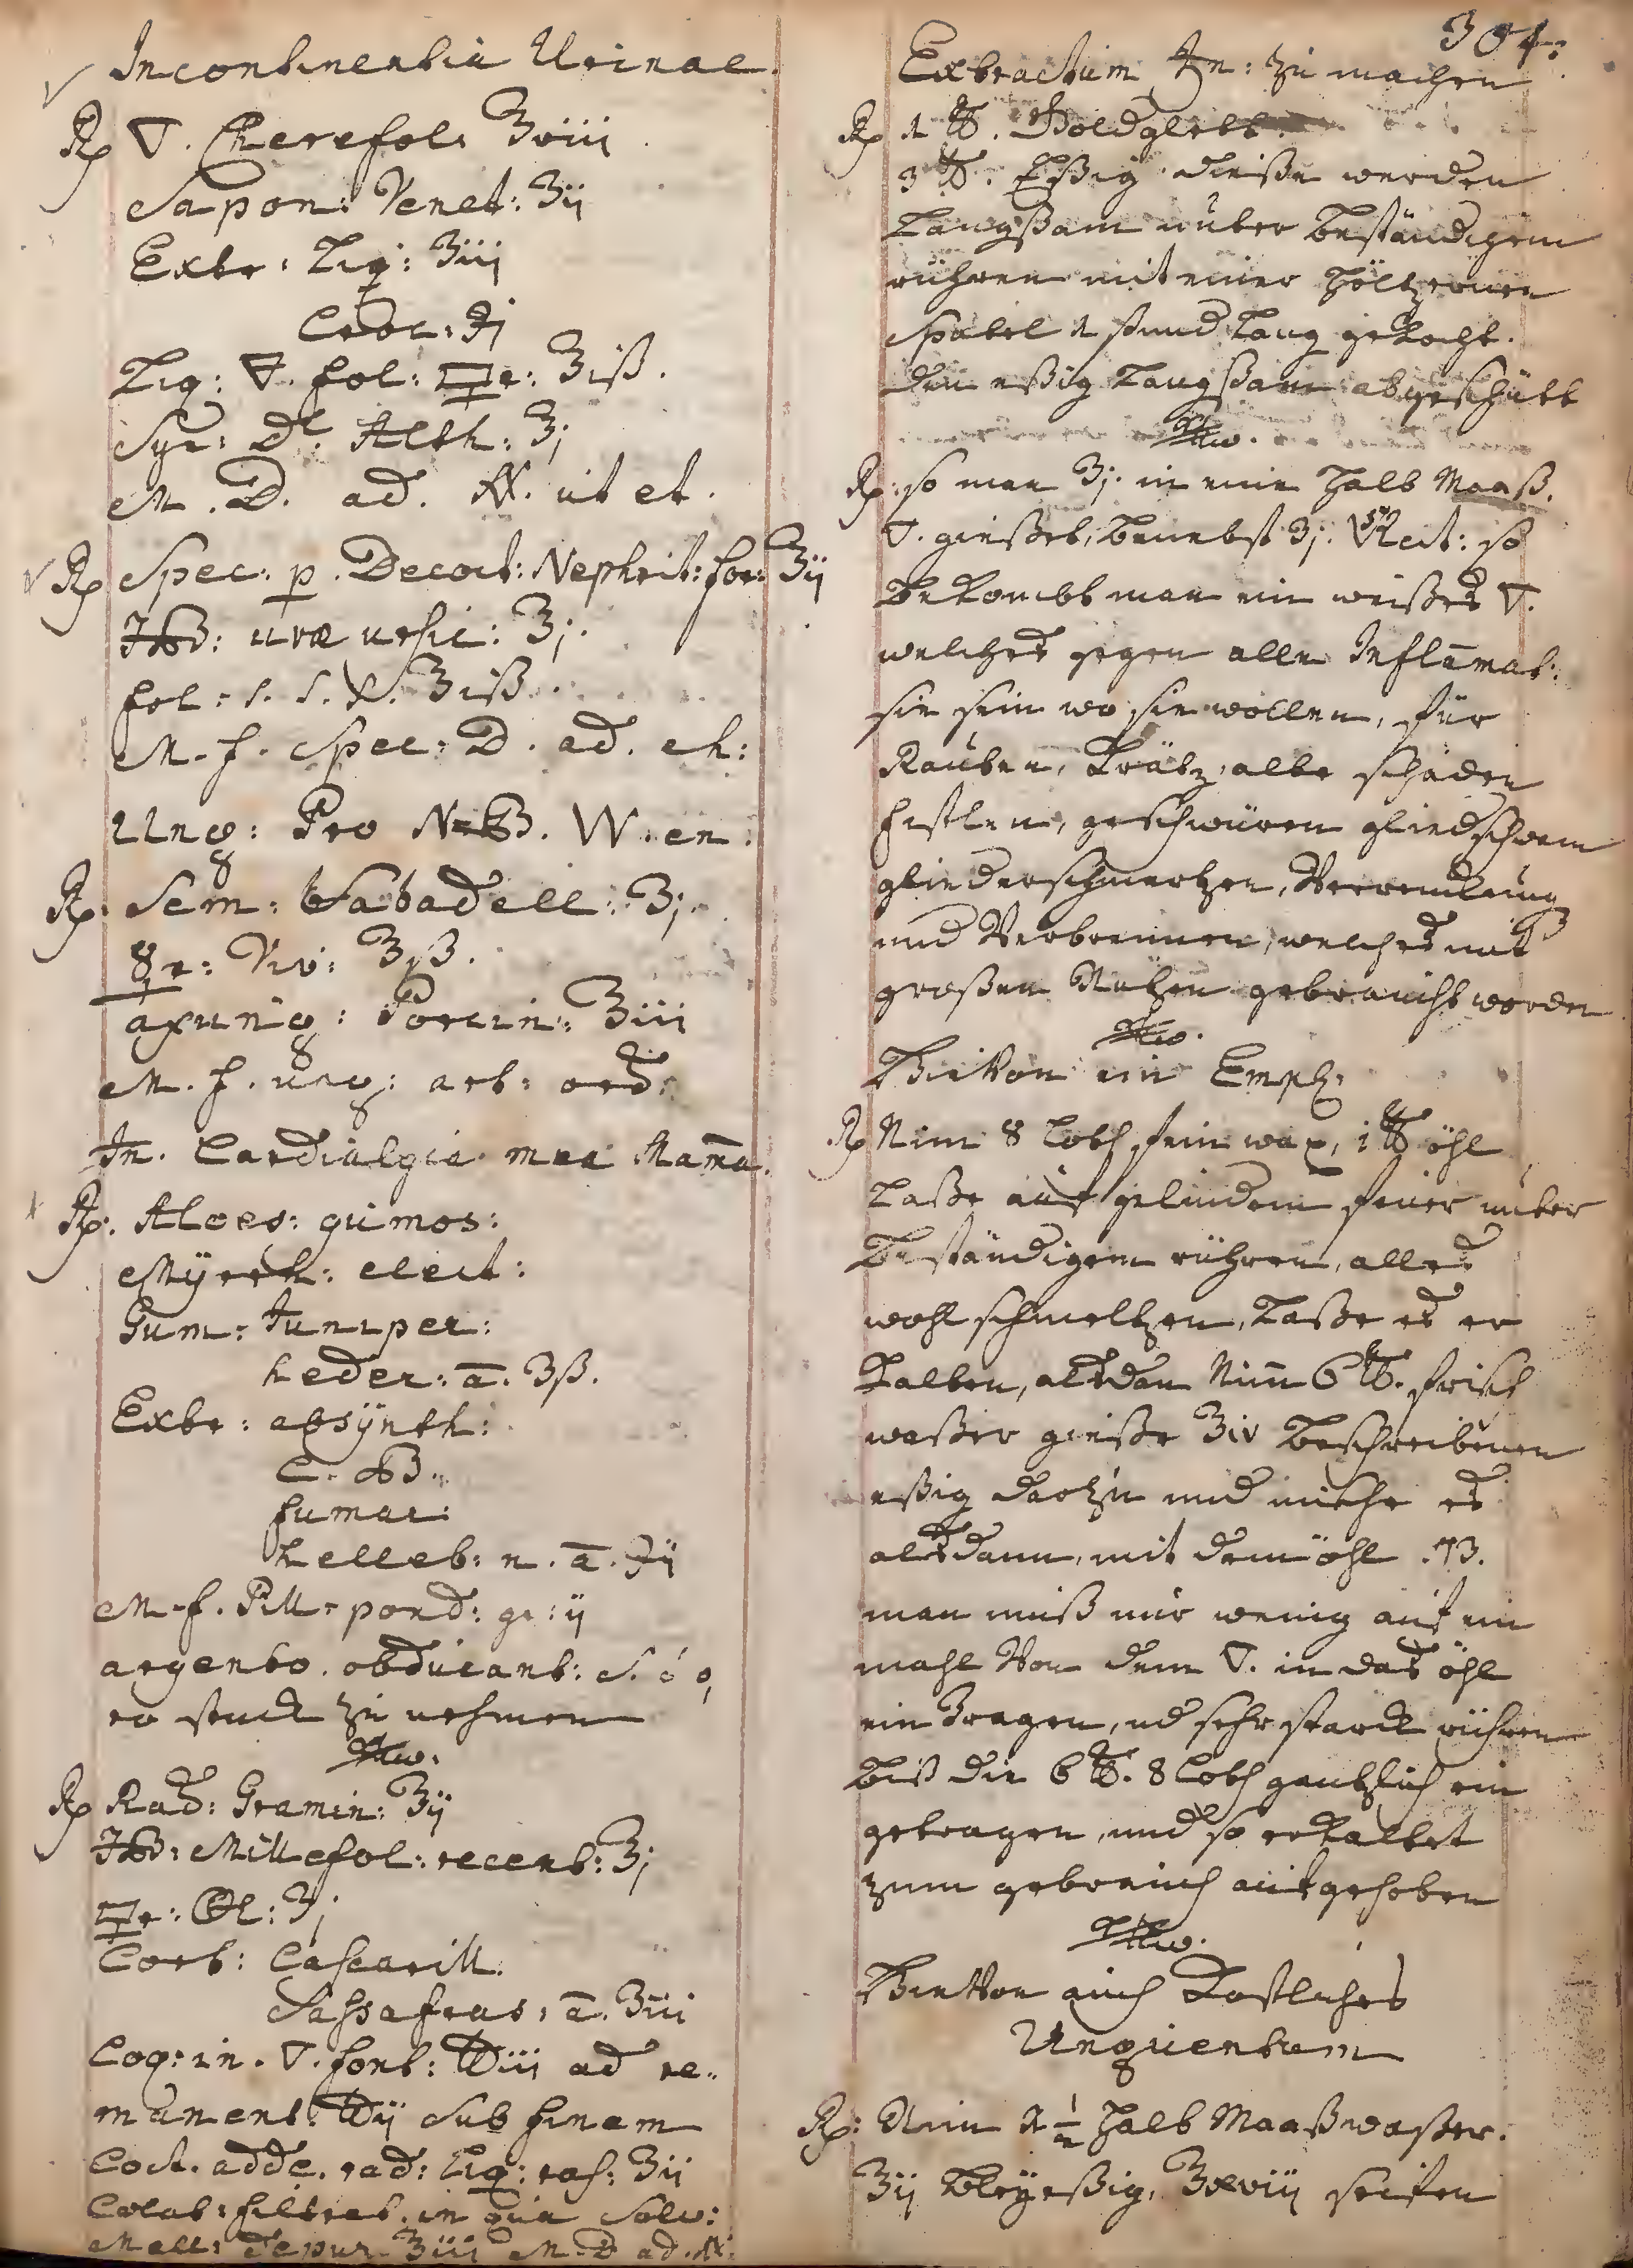 Incontinentia Urinae.
Rp 🜄. Cherefol: ʒviii
Sapon: Venet: ʒij
Extr: Liq: ʒiii
Croc: ℈j
Liq: 🜄. fol: ʒiß.
Syr: Dl. Alth: ʒj
M. D. ad. ut et.
Rp Spec: p. Decoct: Nephrit: for: ʒij
Hb: uvæ ursic: ʒj.
fol: s. s. ʒiß.
M. f. Spec: D. ad. ch:
Ung: Pro W. en:
Rp. Sem: Sabadell: ʒj.
Viv: ʒiß.
axung: Porcin: ʒiii
M. f. ung: art: ord:
In. Cardialgia mea Mam̄a.
Rp. Aloes: gumos:
Mÿrrh: elect:
Gum: Juniper:
heder: ā. ʒß.
Extr: absÿnth:
C. B.
fumar:
helleb: n. ā. ℈ij
M. f. Pill: pond: gr: ij
argento. obducant: S.
stuck zu nehmen
Rp Rad: Gramin: ʒij
Hb: Millefol: recent: ʒj
Cort: Cascarill.
Sassafras: ā. ʒiii
Coq: in. 🜄. font: ℔iii ad re-
manent. ℔ij Sub finem
Coct. adde. rad: Liq: ras: ʒij
Colat: filtrat. in qua Solv:
Mell: depur ʒiii M. D ad.
304.
Extractum ♄n: zu machen
Rp 1 ℔. Goldglett.
3 ℔. Eßig dieße werden
Langßam unter beständigem
rühren mit einer höltzernen
Spatel 1 stund lang gekocht.
den eßig langßam abgeschütt
Rp. so man ʒj. in ein halb Maaß.
🜄. gießet, benebst ʒj. Rect: so
bekombt man ein weißes 🜄.
welches gegen alle Inflam̄at:
sie sein wo sie wollen, für
Rauden, Krätz, alte schäden
fistlen, geschwüren gliedschwam
gliederschmertzen, Verrenckung
und Verbrennen, welches mit
großem Nutzen gebraucht worden
Hievon ein Empl:
Rp Nim 8 Loth fein wax, 1 ℔ öhl
Laße auf gelindem feuer unter
beständigem rühren, alles
wohl schmeltzen, Laße es er
kalten, alsdan Nim̄ 6 ℔. frisch
waßer gieße ʒiv beschreibenen
eßig dartzu und mische es
alsdann, mit dem öhl. NB.
man muß nur wenig auf ein
mahl Von dem 🜄. in das öhl
ein Tragen, ud sehr starck rühren
biß die 6 ℔. 8 Loth gantzlich ein
getragen, und so erkaltet
zum gebrauch aufgehoben
Hievon auch Kostliches
Unguentum
Rp: Nim 1 ½ halb Maaß waßer.
ʒij bleÿeßig, ʒxviij seifen